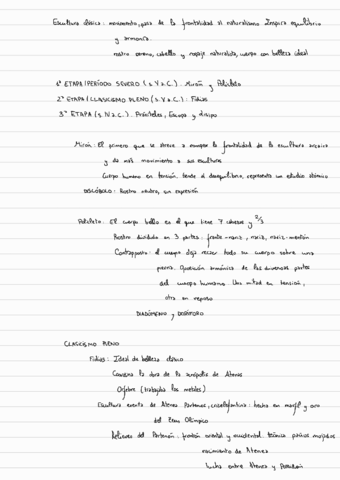 Escultura clásica: movimiento, paso de la frontalidad al naturalismo. Inspira equilibrio
y armonía.
rostro sereno, cabello y ropaje naturalista, cuerpo con belleza ideal
1ª ETAPA/PERÍODO SEVERO (s. V a.C.): Mirón y Policleto
2ª ETAPA/CLASICISMO PLENO (s. V a.C.): Fidias
3ª ETAPA (s. IV a.C.): Praxíteles, Escopas y Lisipo
Mirón: El primero que se atreve a romper la frontalidad de la escultura arcaica
y da más movimiento a sus esculturas
Cuerpo humano en tensión, tiende al desequilibrio, representa un estudio atómico
DISCÓBOLO: Rostro neutro, sin expresión
Policleto: El cuerpo bello es el que tiene 7 cabezas y 2/3
Rostro dividido en 3 partes: frente-nariz, nariz, nariz-mentón
Contrapposto: el cuerpo deja recaer todo su cuerpo sobre una
pierna. Oposición armónica de las diversas partes
del cuerpo humano. Una mitad en tensión,
otra en reposo
DIADÚMENO y DORÍFORO
CLASICISMO PLENO
Fidias: Ideal de belleza clásico
Concibió la obra de la acrópolis de Atenas
Orfebre (trabajaba los metales)
Escultura exenta de Atenea Partenos, criselefantina: hecha en marfil y oro
del Zeus Olímpico
Relieves del Partenón: frontón oriental y occidental. técnica paños mojados
nacimiento de Atenea
lucha entre Atenea y Poseidón